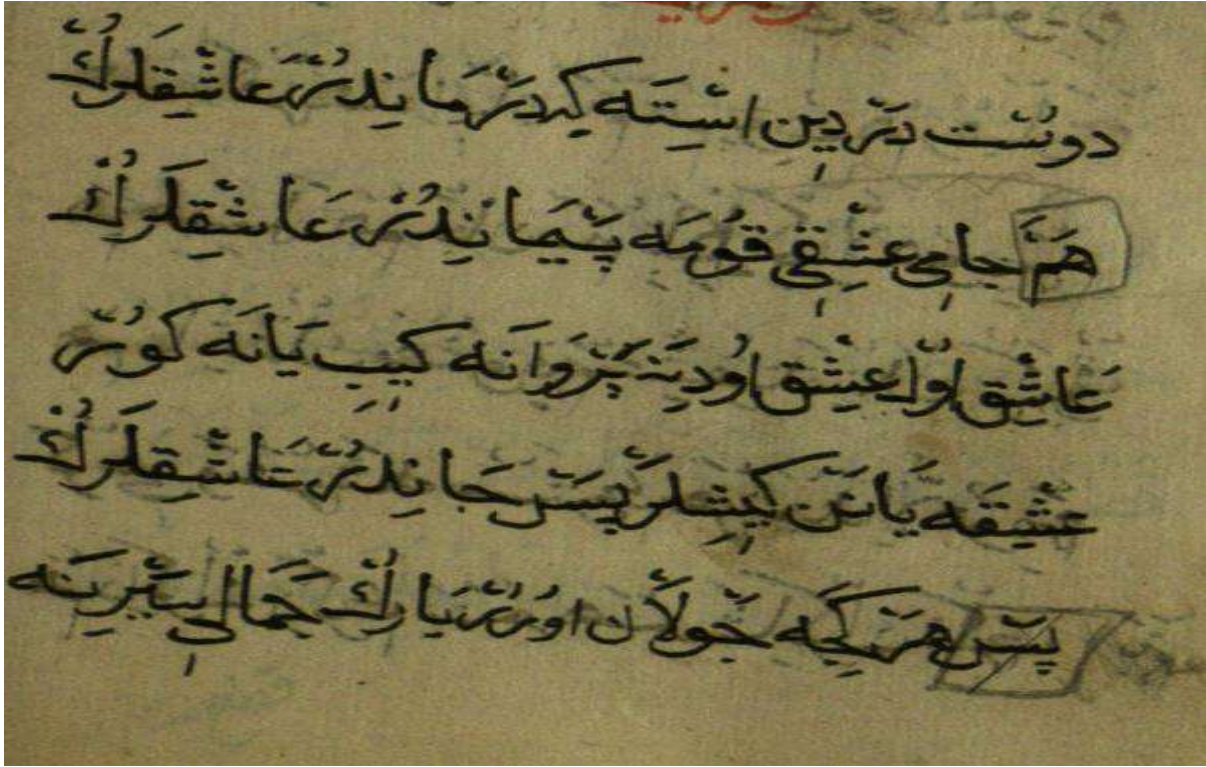 دوسْت دَرْدِين اسْتَه كِدَرْمَانِدُرْ عَاشِقلَرُكْ
هَمَّ جامِ عِشْقِي قُومَه پَيْمَانِدُرْ عَاشِقلَرُكْ
عَاشِقْ اوّل عِشْق اُودِنَه پَرْوَانَه كِيبِ يَانَه كُورْ
عِشْقَه يَانَنْ كِيشِلَرْ بَسْ جَانِدُرْ عَاشِقلَرُكْ
پَسْ هَرْ گِجَه جَوْلاَن اوُرُرْ يَارُكْ جَمَالِ سَيْرِينَه